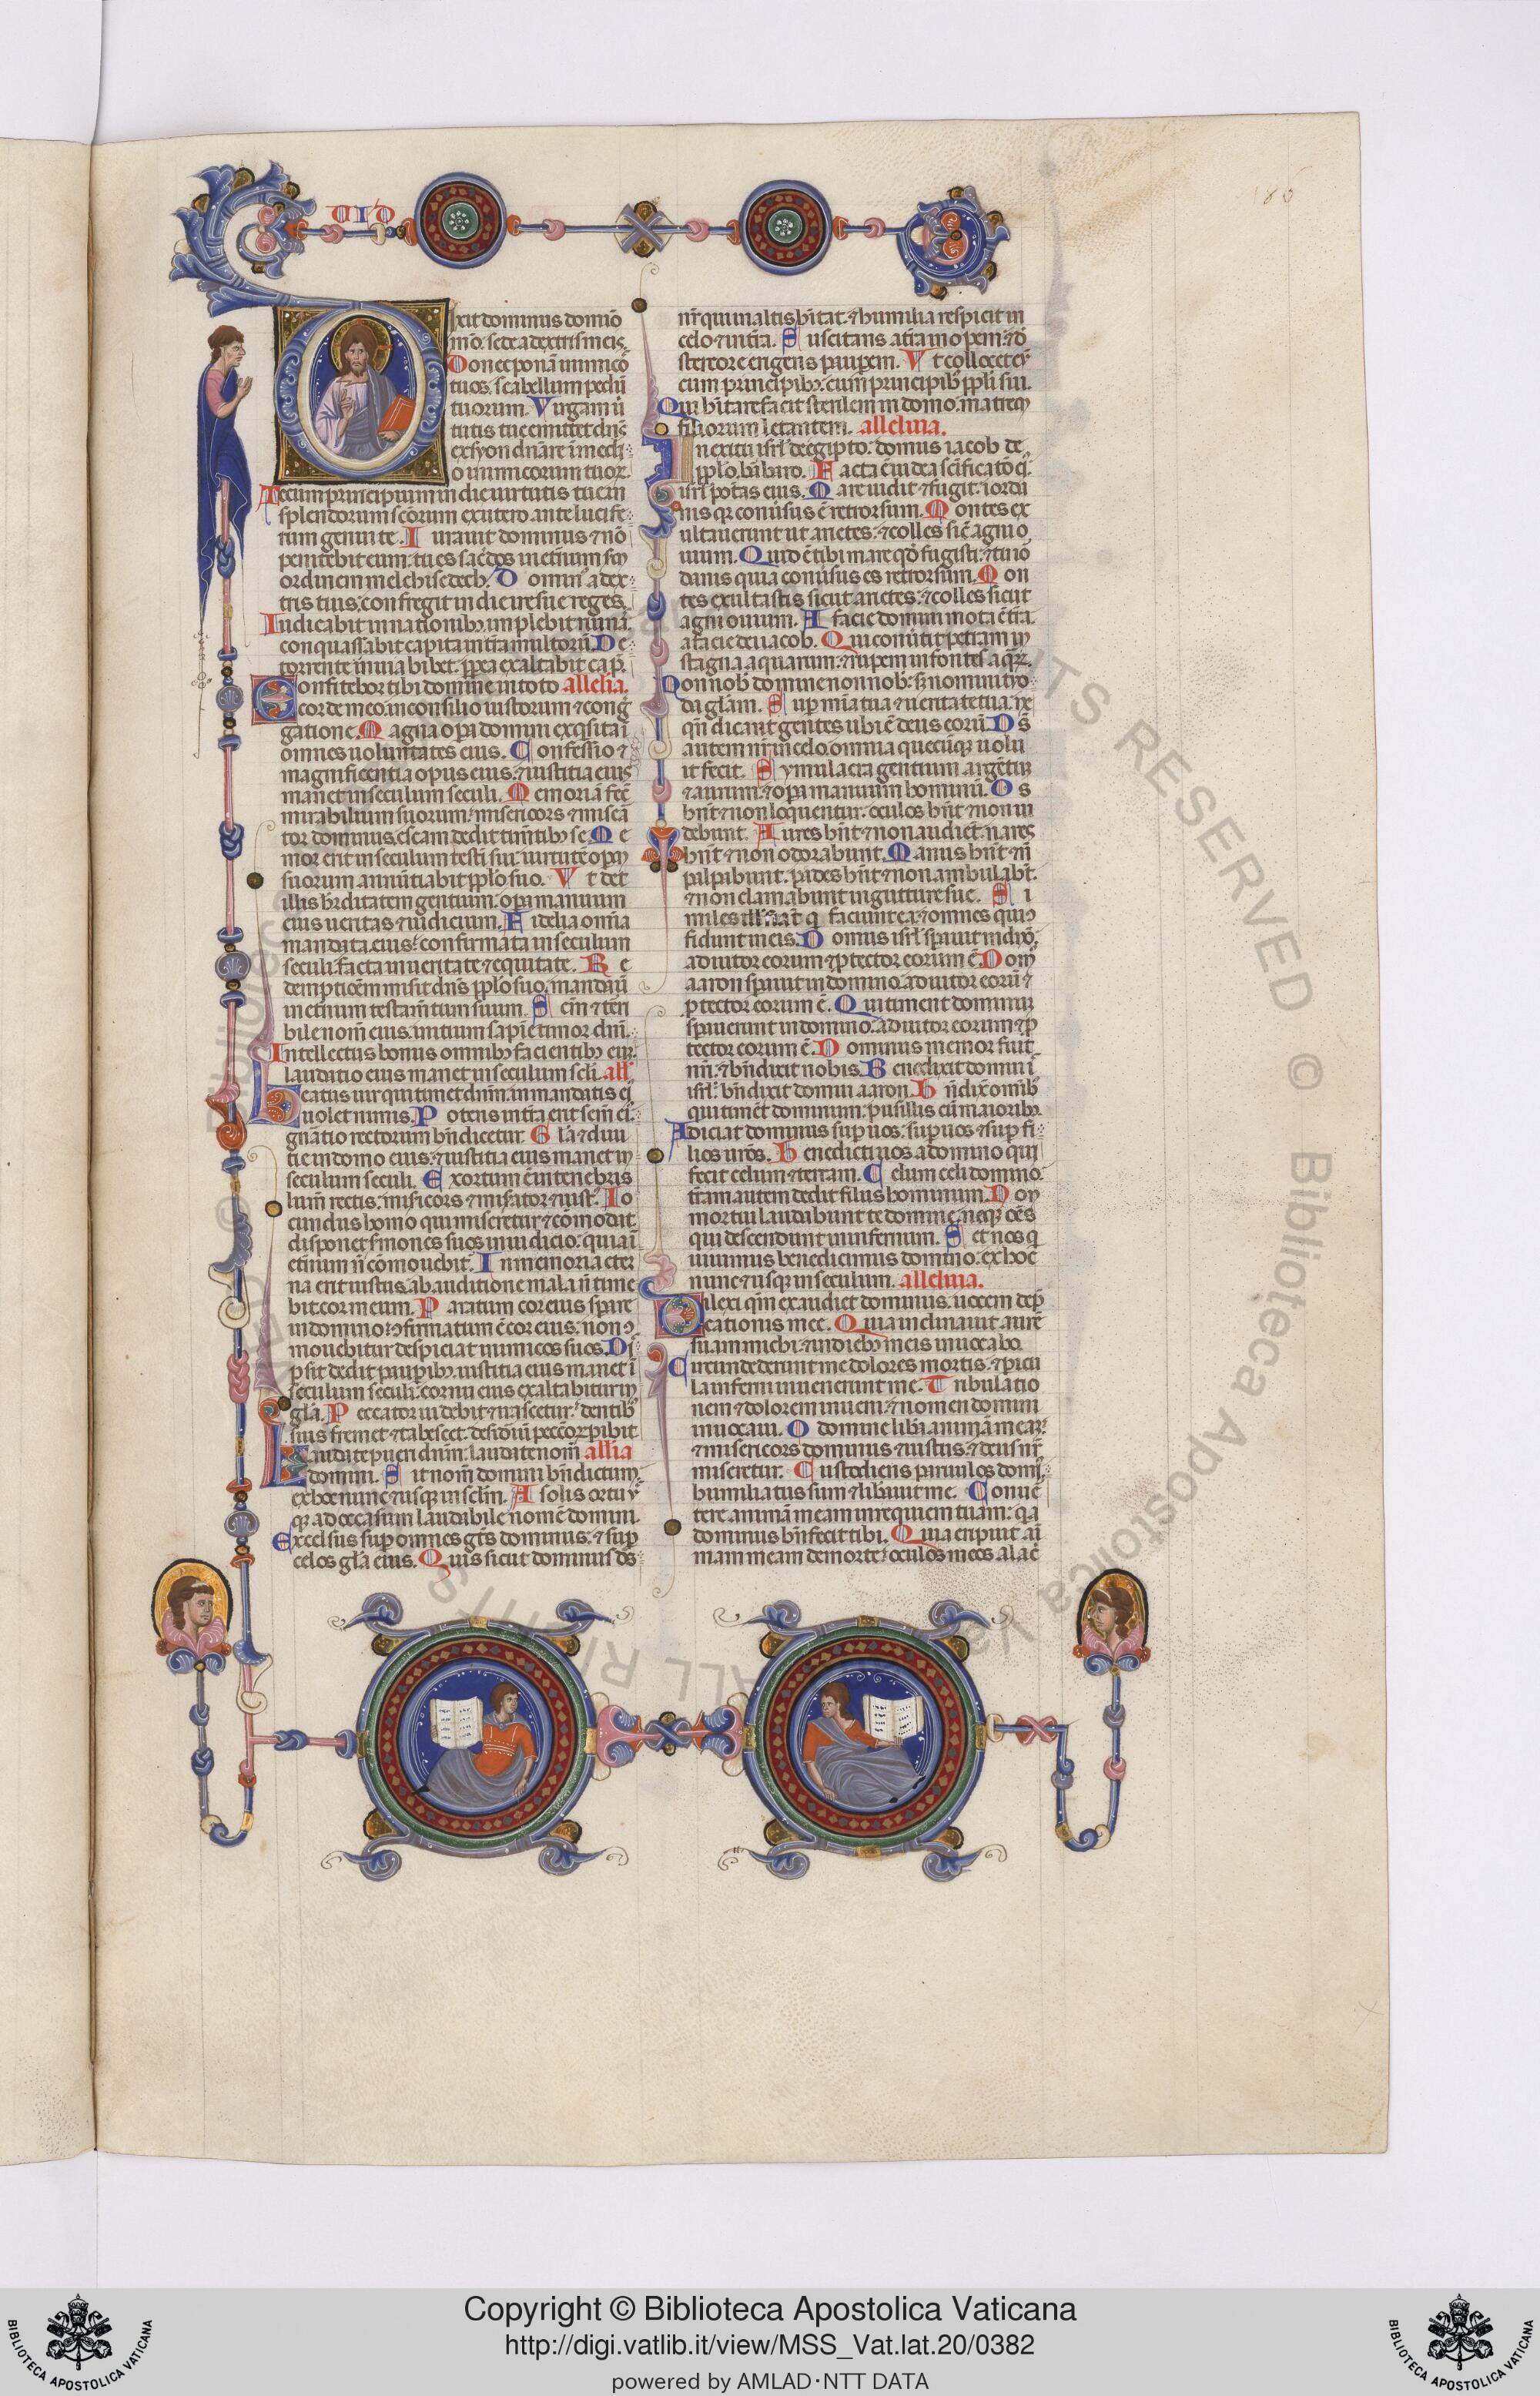 186
ixit dominus domino
m̄o. sede a dextris meis.
Donec ponā inimicos
tuos. scabellum pedū
tuorum. Virgam ū
tutis tue emittet dn̄s
ex syon dn̄are ī medi
o inimicorum tuoꝝ.
Tecum principium in die uirtutis tue in
splendorum scōrum ex utero ante lucife
rum genui te. Iurauit dominus ⁊ nō
penitebit eum. tu es sac̄dos in et̄num scd̄m
ordinem melchisedech. Domin⁹ a dex
tris tuis. confregit in die ire sue reges.
Iudicabit in nationibꝫ implebit ruinā
conquassabit capita in t̄ra multorū. De
torrente in uia bibet. ꝓpt̄ea exaltabit cap̄.
Confitebor tibi domine in toto alleluia.
corde meo. in consilio iustorum ⁊ conḡ
gatione. Magna oꝑa domini exq̄sita ī
omnes uoluntates eius. Confessio ⁊
magnificentia opus eius. ⁊ iustitia eius
manet in seculum seculi. Memoriā fec̄
mirabilium suorum. misericors ⁊ misera
tor dominus. escam dedit tim̄tibꝫ se. Me
mor erit in seculum testī sui. uirtutē oꝑm
suorum annūtiabit ppl̄o suo. Vt det
illis h̄reditatem gentium. oꝑa manuum
eius ueritas ⁊ iudicium. Fidelia omīa
mandata eius. confirmata in seculum
seculi. facta in ueritate ⁊ equitate. Re
demptionem misit dn̄s ppl̄o suo. mandauit
in et̄num testam̄tum suum. Scm̄ ⁊ t̄ri
bile nom̄ eius. initium sapīe timor dn̄i.
Intellectus bonus omnibꝫ facientibꝫ eum.
laudatio eius manet in seculum scl̄i. all̄
Beatus uir qui timet dn̄m. in mandatis ei⁹
uolet nimis. Potens in t̄ra erit sem̄ ei⁹.
gn̄atio rectorum bn̄dicetur. Gl̄a ⁊ diui
tie in domo eius. ⁊ iustitia eius manet in
seculum seculi. Exortum ē in tenebris
lum̄ rectis. misericors ⁊ miserator ⁊ iust⁹. Io
cundus homo qui miseretur ⁊ cōmodat.
disponet sermones suos in iudicio. quia ī
et̄num n̄ cōmouebit̄. In memoria eter
na erit iustus. ab auditione mala n̄ time
bit. Paratum cor eius sperare
in domino. ꝯfirmatum ē cor eius. non ꝯ
mouebitur despiciat inimicos suos. Di
ꝑsit dedit pauꝑibꝫ. iustitia eius manet ī
seculum seculi. cornu eius exaltabitur in
gl̄a. Peccator uidebit ⁊ irascetur. dentibꝫ
suis fremet ⁊ tabescet. desid̄iū pecc̄oꝝ ꝑibit
Laudate pueri dn̄m. laudate nom̄ all̄ia
domini. Sit nom̄ domini bn̄dictum.
ex hoc nunc ⁊ usqꝫ in sclm̄. A solis ortu us
qꝫ ad occasum laudabile nomē domini.
Excelsus suꝑ omnes gn̄tes dominus. ⁊ suꝑ
celos gl̄a eius. Quis sicut dominus d̄s
nr̄ qui in altis h̄itat. ⁊ humilia respicit in
celo ⁊ in t̄ra. Suscitans a t̄ra inopem. ⁊ d̄
stercore erigens pauꝑem. Vt collocet eū
cum principibꝫ. cum principibꝫ ppl̄i sui.
Qui h̄itare facit sterilem in domo. matrem
filiorum letantem. alleluia.
In exitu isrl̄ de egipto. domus iacob de
ppl̄o barbaro. Facta ē iudea sc̄ificatō ei⁹.
isrl̄ pot̄as eius. Mare uidit ⁊ fugit. iorda
nis conuersus ē retrorsum. Montes ex
ultauerunt ut arietes. ⁊ colles sic̄ agni o
uium. Quid ē tibi mare qd̄ fugisti. ⁊ tu ior
danis quia conuersus es retrorsum. Mon
tes exultastis sicut arietes. ⁊ colles sicut
agni ouium. A facie domini mota ē t̄ra.
a facie dei iacob. Qui conuertit petram in
stagna aquarum. ⁊ rupem in fontes aq̄ꝝ.
Non nob̄ domine non nob̄. s; nomini tuo
da gl̄am. Suꝑ mīa tua ⁊ ueritate tua. ne
qn̄ dicant gentes ubi ē deus eorū. Ds̄
autem nr̄ in celo. omnia quecūqꝫ uolu
it fecit. Symulacra gentium argētum
⁊ aurum. ⁊ oꝑa manuum hominū. Os
hn̄t ⁊ non loquentur. oculos hn̄t ⁊ non ui
debunt. Aures hn̄t ⁊ non audiēt. nares
hn̄t ⁊ non odorabunt. Manus hn̄t ⁊ n̄
palpabunt. pedes hn̄t ⁊ non ambulabt̄.
⁊ non clamabunt in gutture suo. Si
miles illis fiāt q̄ faciunt ea. ⁊ omnes qui ꝯ
fidunt in eis. Domus isrl̄ sꝑauit in dn̄o.
adiutor eorum ⁊ ꝓtector eorum ē. Domus
aaron sꝑauit in domino. adiutor eorū ⁊
ꝓtector eorum ē. Qui timent dominum
sꝑauerunt in domino. adiutor eorum ⁊ ꝓ
tector eorum ē. Dominus memor fuit
nr̄i. ⁊ bn̄dixit nobis. Benedixit domui
isrl̄. bn̄dixit domui aaron. Bn̄dix̄ omībꝫ
qui timēt dominum. pusillis cū maioribꝫ.
Adiciat dominus suꝑ uos. suꝑ uos ⁊ suꝑ fi
lios ur̄os. Benedicti uos a domino qui
fecit celum ⁊ terram. Celum celi domino.
t̄ram autem dedit filiis hominum. Non
mortui laudabunt te domine. neqꝫ oēs
qui descendunt in infernum. Set nos q̄
uiuimus benedicimus domino. ex hoc
nunc ⁊ usqꝫ in seculum. alleluia.
Dilexi qm̄ exaudiet dominus. uocem dep̄
cationis mee. Quia inclinauit aurē
suam michi. ⁊ in diebꝫ meis inuocabo.
Circundederunt me dolores mortis. ⁊ ꝑicu
la inferni inuenerunt me. Tribulatio
nem ⁊ dolorem inueni. ⁊ nomen domini
inuocaui. O domine libera animā meam.
⁊ misericors dominus ⁊ iustus. ⁊ deus nr̄
miseretur. Custodiens paruulos domin⁹.
humiliatus sum ⁊ lib̄auit me. Conuer
tere animā meam in requiem tuam. q̄a
dominus bn̄fecit tibi. Quia eripuit ani
mam meam de morte. oculos meos a lac̄
ALL RIGHTS RESERVED © Biblioteca Apostolica Vaticana
Copyright © Biblioteca Apostolica Vaticana
http://digi.vatlib.it/view/MSS_Vat.lat.20/0382
powered by AMLAD·NTT DATA
BIBLIOTECA APOSTOLICA VATICANA
BIBLIOTECA APOSTOLICA VATICANA